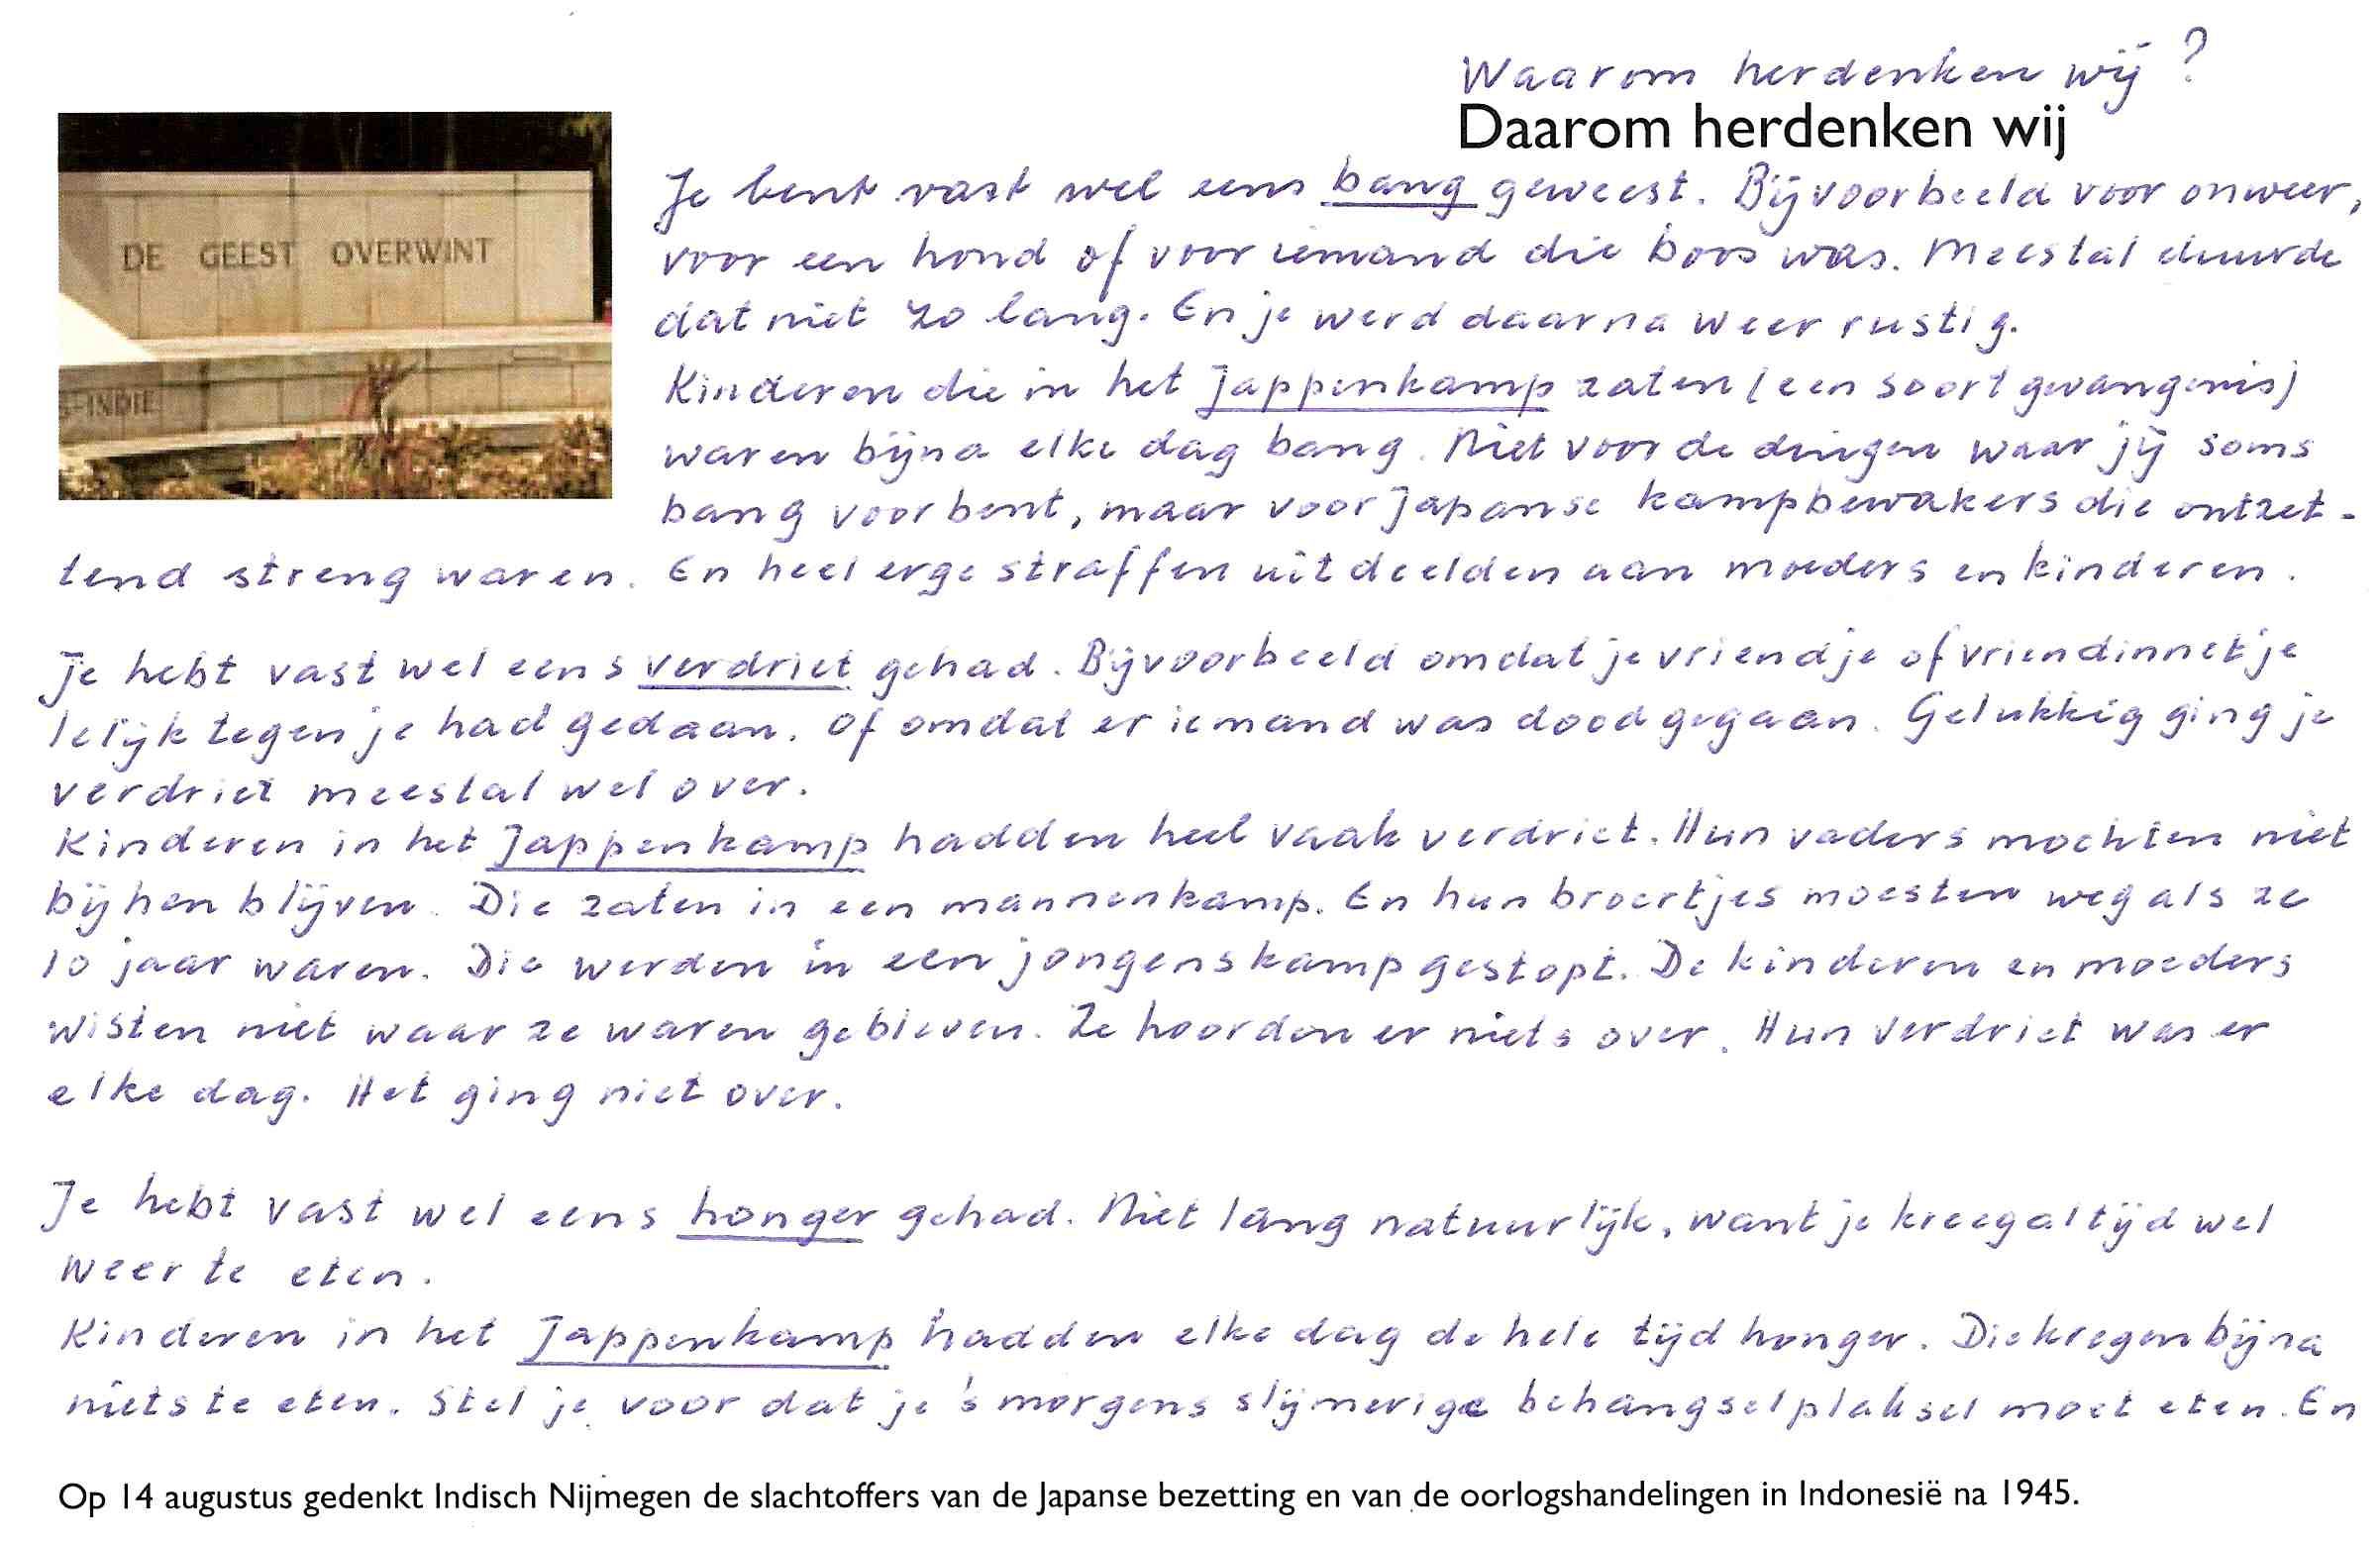 Waarom herdenken wij ?
Daarom herdenken wij
DE GEEST OVERWINT
S-INDIE
Je bent vast wel eens bang geweest. Bijvoorbeeld voor onweer,
voor een hond of voor iemand die boos was. Meestal duurde
dat niet zo lang. En je werd daarna weer rustig.
Kinderen die in het Jappenkamp zaten (een soort gevangenis)
waren bijna elke dag bang. Niet voor de dingen waar jij soms
bang voor bent, maar voor Japanse kampbewakers die ontzet-
tend streng waren. En heel erge straffen uitdeelden aan moeders en kinderen.
Je hebt vast wel eens verdriet gehad. Bijvoorbeeld omdat je vriendje of vriendinnetje
lelijk tegen je had gedaan. Of omdat er iemand was dood gegaan. Gelukkig ging je
verdriet meestal wel over.
Kinderen in het Jappenkamp hadden heel vaak verdriet. Hun vaders mochten niet
bij hen blijven. Die zaten in een mannenkamp. En hun broertjes moesten weg als ze
10 jaar waren. Die werden in een jongenskamp gestopt. De kinderen en moeders
wisten niet waar ze waren gebleven. Ze hoorden er niets over. Hun verdriet was er
elke dag. Het ging niet over.
Je hebt vast wel eens honger gehad. Niet lang natuurlijk, want je kreeg altijd wel
weer te eten.
Kinderen in het Jappenkamp hadden elke dag de hele tijd honger. Die kregen bijna
niets te eten. Stel je voor dat je 's morgens slijmerige behangselplaksel moet eten. En
Op 14 augustus gedenkt Indisch Nijmegen de slachtoffers van de Japanse bezetting en van de oorlogshandelingen in Indonesië na 1945.